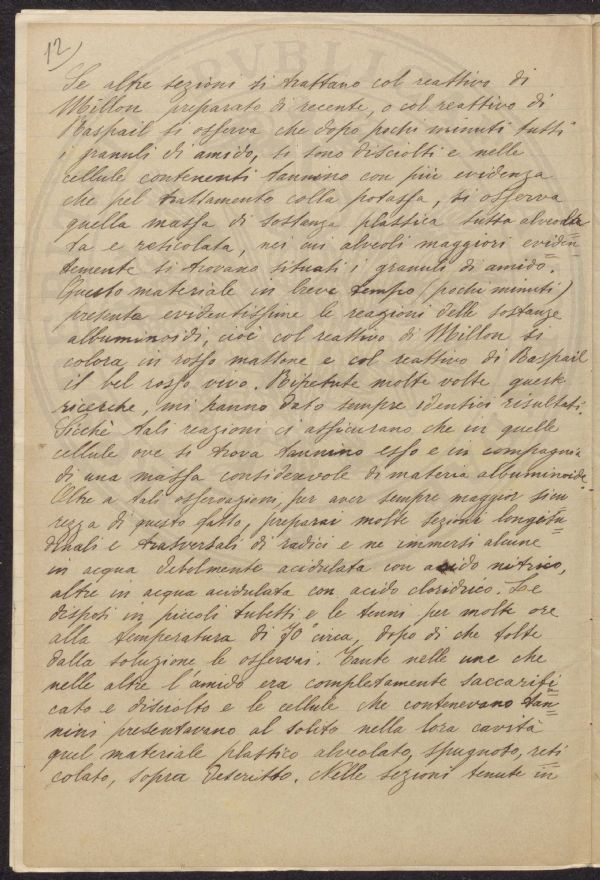 12)
Se altre sezioni si trattano col reattivo di
Millon preparato di recente, o col reattivo di
Raspail si osserva che dopo pochi minuti tutti
i granuli di amido, si sono disciolti e nelle
cellule contenenti tannino con più evidenza
che pel trattamento colla potassa, si osserva
quella massa di sostanza plastica tutta alveola
ta e reticolata, nei cui alveoli maggiori eviden
temente si trovano situati i granuli di amido.
Questo materiale in breve tempo (pochi minuti)
presenta evidentissime le reazioni delle sostanze
albuminoidi, cioè col reattivo di Millon si
colora in rosso mattone e col reattivo di Raspail
il bel rosso vivo. Ripetute molte volte queste
ricerche, mi hanno dato sempre identici risultati.
Sicchè tali reazioni ci assicurano che in quelle
cellule ove si trova tannino esso e in compagnia
di una massa considerevole di materia albuminoide.
Oltre a tali osservazioni per aver sempre maggior sicu
rezza di questo fatto, preparai molte sezioni longitu
dinali e trasversali di radici e ne immersi alcune
in acqua debolmente acidulata con acido nitrico,
altre in acqua acidulata con acido cloridrico. Le
disposi in piccoli tubetti e le tenni per molte ore
alla temperatura di 70° circa, dopo di che tolte
dalla soluzione le osservai. Tanto nelle une che
nelle altre l'amido era completamente saccarifi
cato e disciolto e le cellule che contenevano tan
nini presentavano al solito nella loro cavità
quel materiale plastico alveolato, spugnoso, reti
colato, sopra descritto. Nelle sezioni tenute in